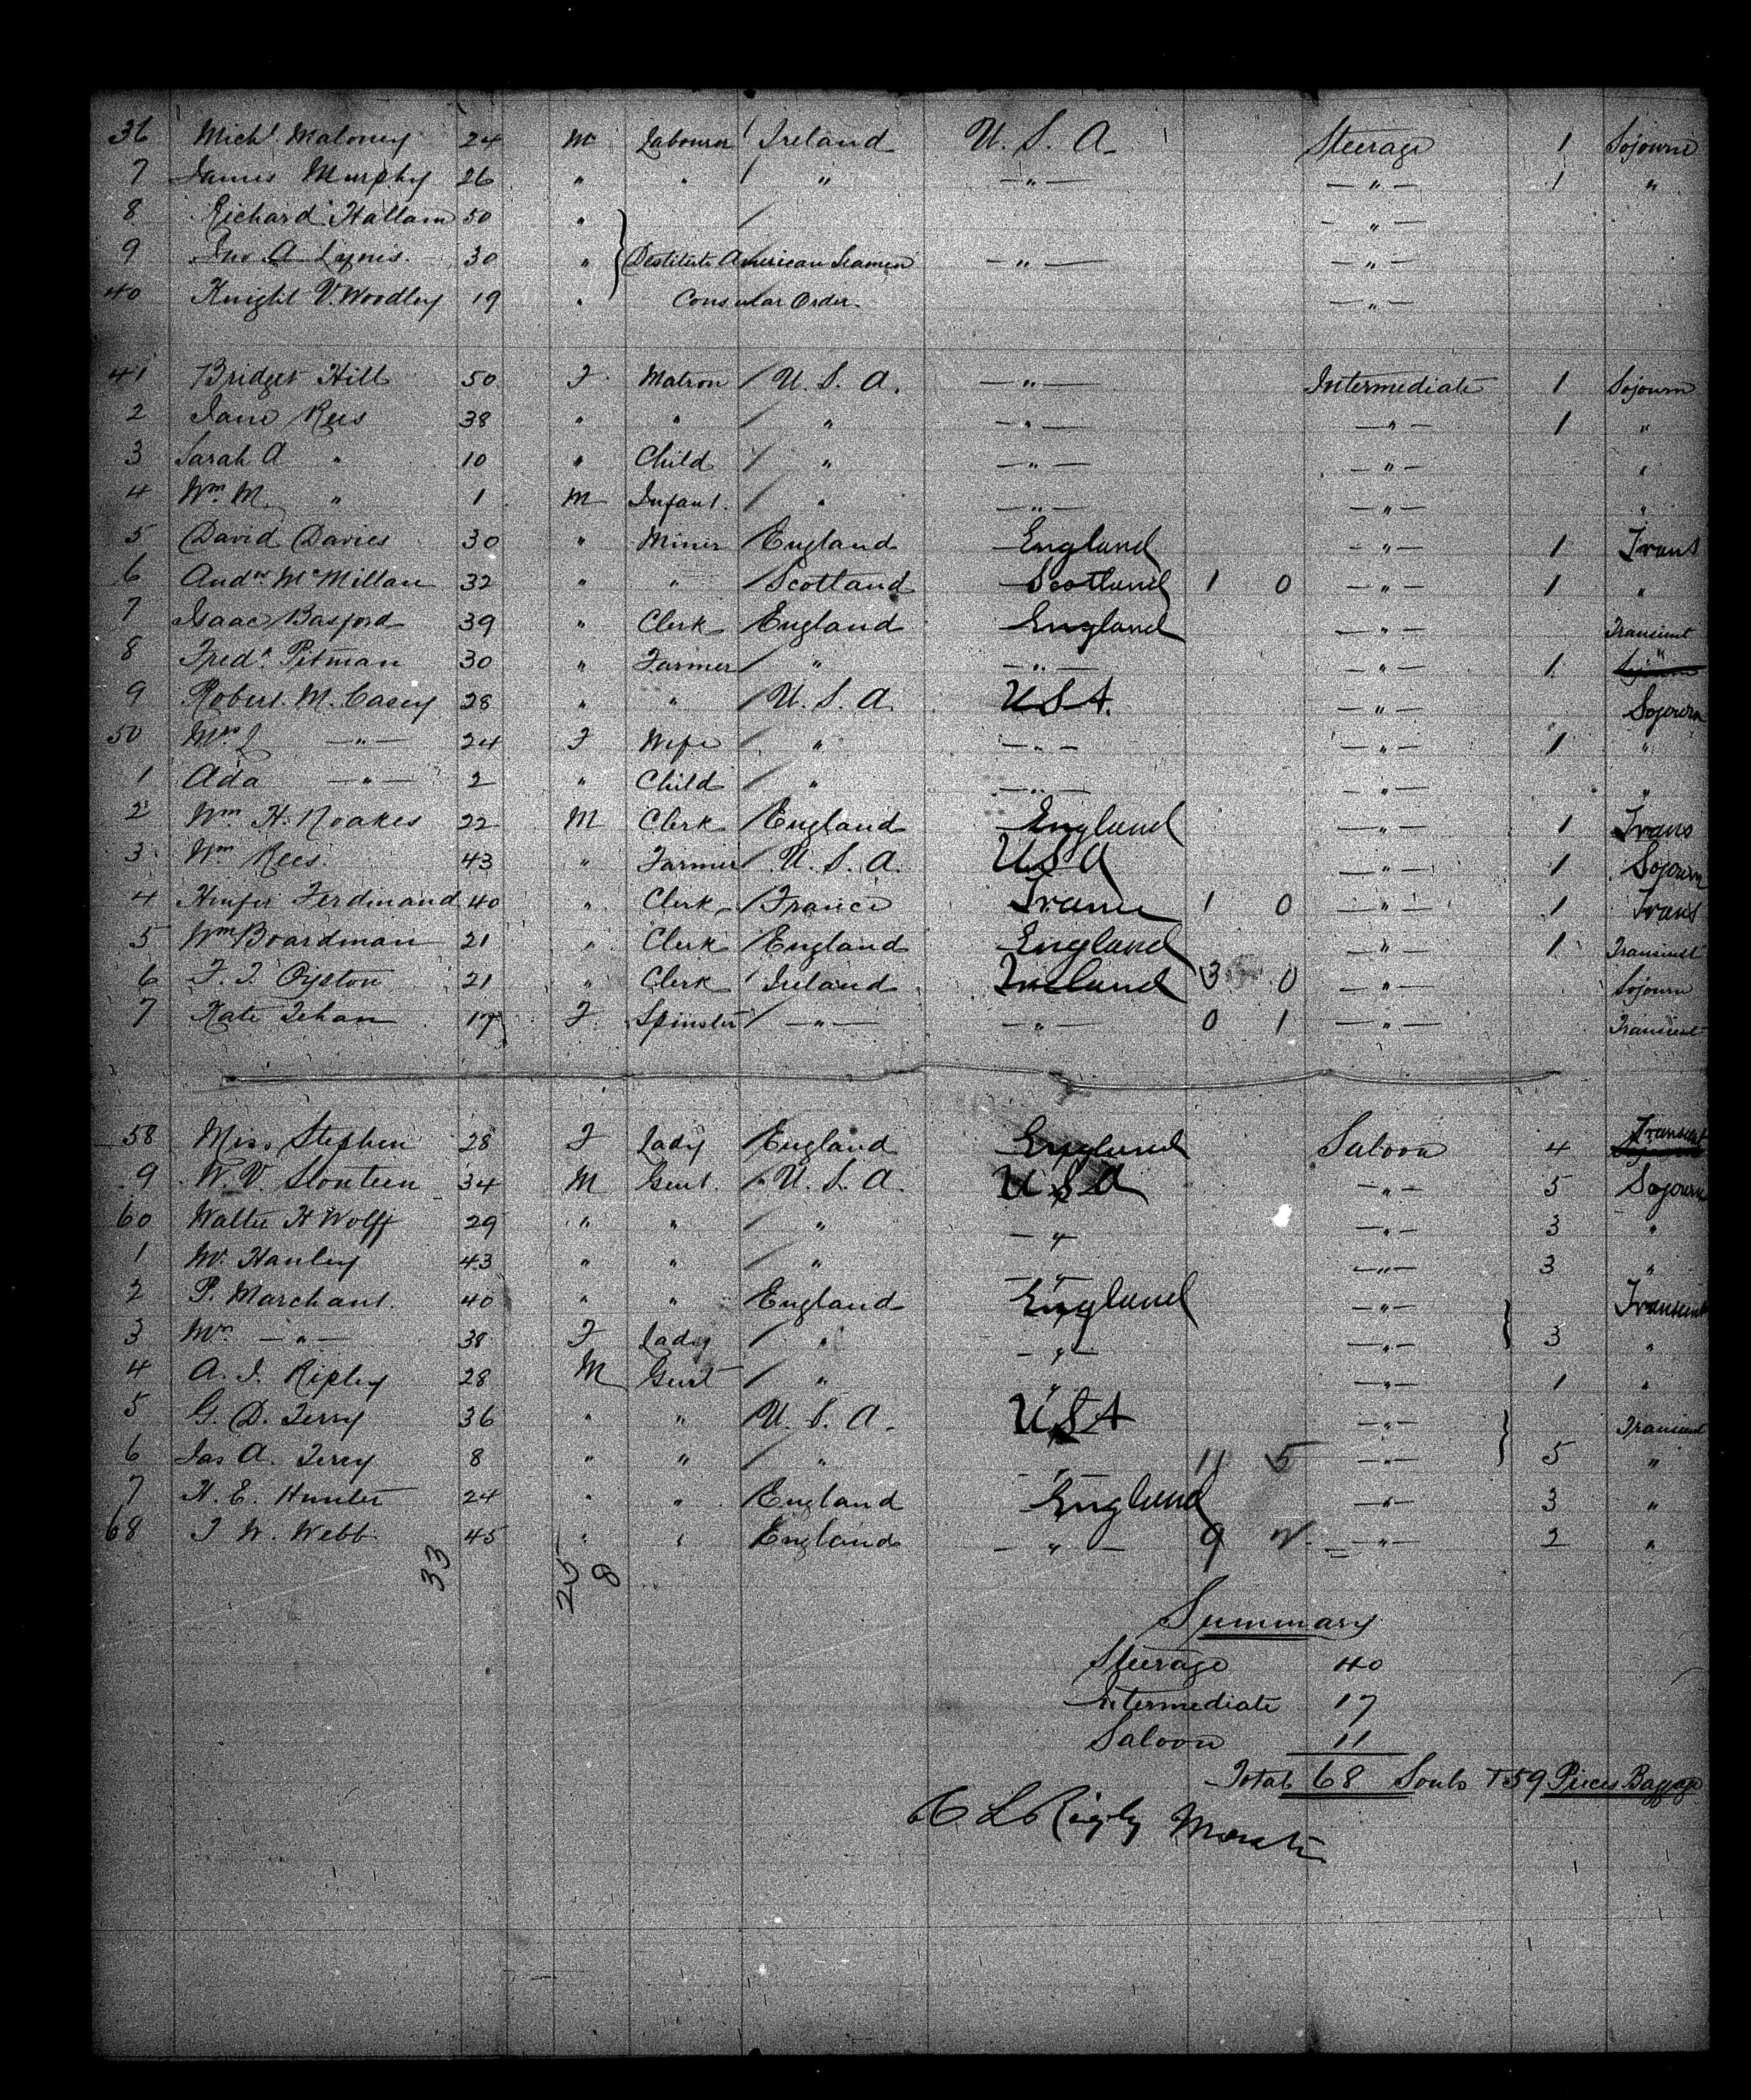 36 Michl. Maloney 24 M Labourer Ireland U. S. A. Steerage 1 Sojourn
7 James Murphy 26 " " " — " — — " — 1 "
8 Richard Hallam 50 " — " —
9 Jno. A Lynis 30 " Destitute American Seamen — " — — " —
40 Knight V. Woodley 19 " Consular Order — " —
41 Bridget Hill 50 F Matron U. S. A. — " — Intermediate 1 Sojourn
2 Jane Rees 38 " " " — " — — " — 1 "
3 Sarah A " 10 " Child " — " — — " — "
4 Wm. M. " 1 M Infant " — " — — " — "
5 David Davies 30 " Miner England England — " — 1 Trans
6 Andw McMillan 32 " " Scotland Scotland 1 0 — " — 1 "
7 Isaac Basford 39 " Clerk England England — " — Transient
8 Fredk. Pitman 30 " Farmer " — " — — " — 1 "
9 Robert. M. Casey 28 " " U. S. A. USA. — " — Sojourn
50 Mrs — " — 24 F Wife " — " — — " — 1 "
1 Ada — " — 2 " Child " — " — — " — "
2 Wm. H. Noakes 22 M Clerk England England — " — 1 Trans
3 Wm Rees 43 " Farmer U. S. A. USA — " — 1 Sojourn
4 Ferdinand 40 " Clerk France France 1 0 — " — 1 Trans
5 Wm Boardman 21 " Clerk England England — " — 1 Transient
6 F. J. Oyston 21 " Clerk Ireland Ireland 3 0 — " — Sojourn
7 Kate Tehan 17 F. Spinster — " — — " — 0 1 — " — Transient
58 Miss Stephen 28 F Lady England England Saloon 4 Transient
9 W. V. 34 M Gent. U. S. A. USA — " — 5 Sojourn
60 Walter H Wolff 29 " " " — " — — " — 3 "
1 W. Hanley 43 " " " — " — — " — 3 "
2 P. Marchant. 40 " " England England — " — Transient
3 Mrs — " — 38 F Lady " — " — — " — 3 "
4 A. J. Ripley 28 M Gent " " — " — 1 "
5 G. D. Terry 36 " " U. S. A. USA — " — Transient
6 Jas A. Terry 8 " " " — " — 11 5 — " — 5 "
7 H. E. Hunter 24 " " England England — " — 3 "
68 J W. Webb 45 " " England — " — 9 — " — 2 "
33 25 8
Summary
Steerage 40
Intermediate 17
Saloon 11
Total 68 Souls + 59 Pieces Baggage
C. L. Rigby